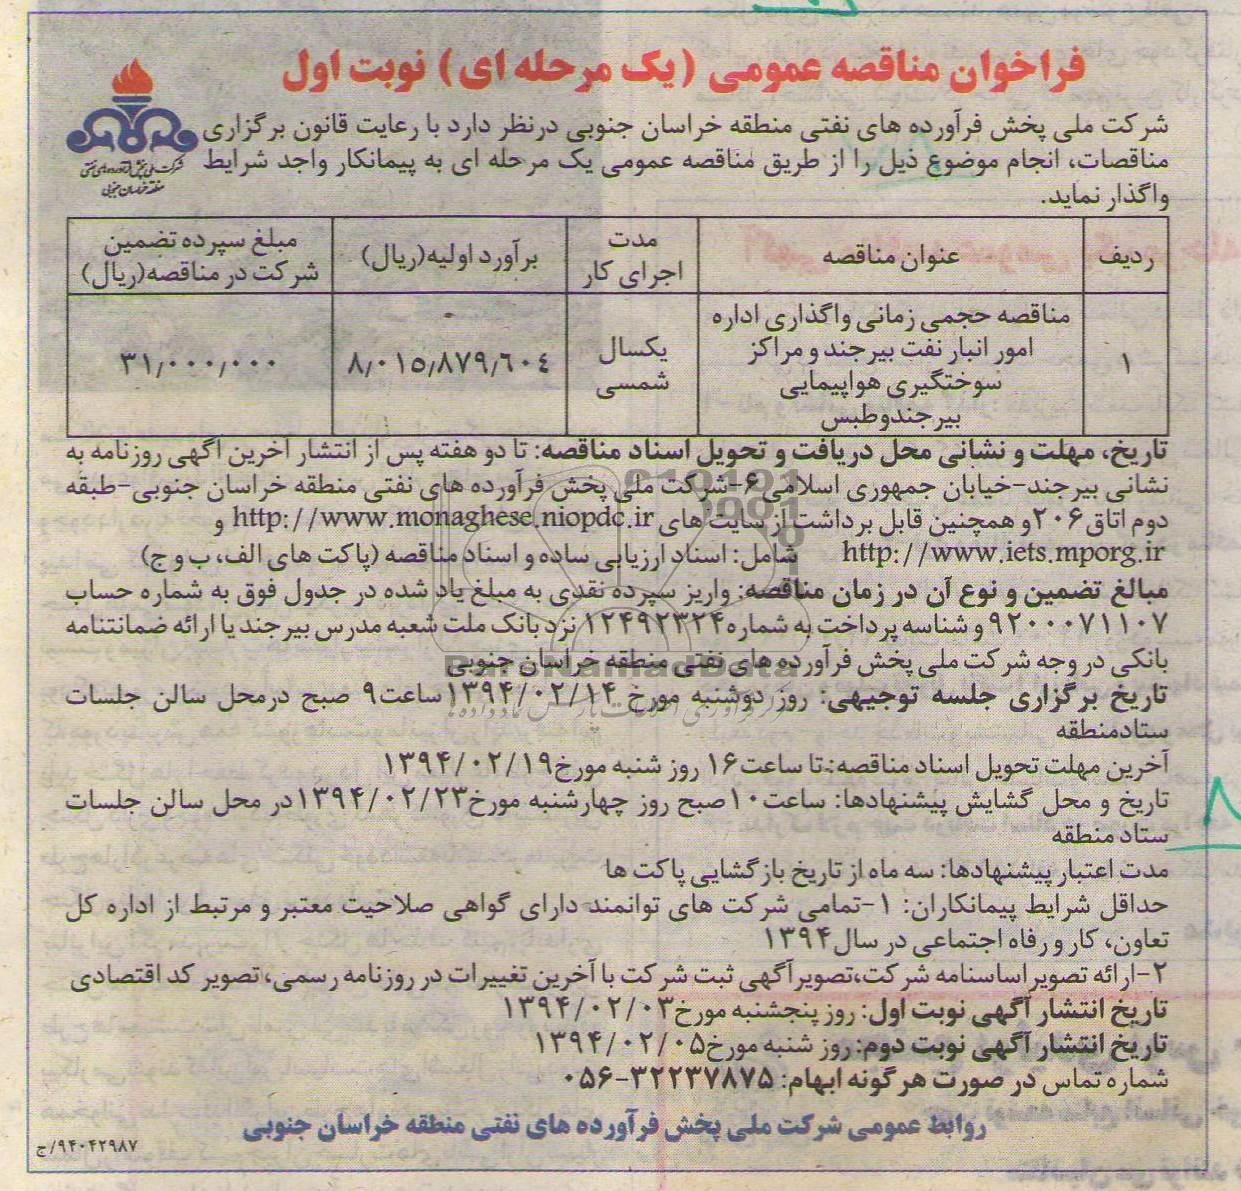 فراخوان مناقصه عمومی (یک مرحله ای) نوبت اول
شرکت ملی پخش فرآورده های نفتی
منطقه خراسان جنوبی
شرکت ملی پخش فرآورده های نفتی منطقه خراسان جنوبی درنظر دارد با رعایت قانون برگزاری
مناقصات، انجام موضوع ذیل را از طریق مناقصه عمومی یک مرحله ای به پیمانکار واجد شرایط
واگذار نماید.
ردیف
عنوان مناقصه
مدت
اجرای کار
برآورد اولیه(ریال)
مبلغ سپرده تضمین
شرکت در مناقصه(ریال)
۱
مناقصه حجمی زمانی واگذاری اداره
امور انبار نفت بیرجند و مراکز
سوختگیری هواپیمایی
بیرجندوطبس
یکسال
شمسی
۸٫۰۱۵٫۸۷۹٫٦۰٤
۳۱٫۰۰۰٫۰۰۰
تاریخ، مهلت و نشانی محل دریافت و تحویل اسناد مناقصه: تا دو هفته پس از انتشار آخرین آگهی روزنامه به
نشانی بیرجند-خیابان جمهوری اسلامی ۶-شرکت ملی پخش فرآورده های نفتی منطقه خراسان جنوبی-طبقه
دوم اتاق ۲۰۶ و همچنین قابل برداشت از سایت های http://www.monaghese.niopdc.ir و
http://www.iets.mporg.ir شامل: اسناد ارزیابی ساده و اسناد مناقصه (پاکت های الف، ب و ج)
مبالغ تضمین و نوع آن در زمان مناقصه: واریز سپرده نقدی به مبلغ یاد شده در جدول فوق به شماره حساب
۹۲۰۰۰۷۱۱۰۷ و شناسه پرداخت به شماره ۱۲۴۹۲۳۲۴ نزد بانک ملت شعبه مدرس بیرجند یا ارائه ضمانتنامه
بانکی در وجه شرکت ملی پخش فرآورده های نفتی منطقه خراسان جنوبی
تاریخ برگزاری جلسه توجیهی: روز دوشنبه مورخ ۱۳۹۴/۰۲/۱۴ ساعت ۹ صبح درمحل سالن جلسات
ستادمنطقه
آخرین مهلت تحویل اسناد مناقصه: تا ساعت ۱۶ روز شنبه مورخ ۱۳۹۴/۰۲/۱۹
تاریخ و محل گشایش پیشنهادها: ساعت ۱۰ صبح روز چهارشنبه مورخ ۱۳۹۴/۰۲/۲۳ در محل سالن جلسات
ستاد منطقه
مدت اعتبار پیشنهادها: سه ماه از تاریخ بازگشایی پاکت ها
حداقل شرایط پیمانکاران: ۱-تمامی شرکت های توانمند دارای گواهی صلاحیت معتبر و مرتبط از اداره کل
تعاون، کار و رفاه اجتماعی در سال ۱۳۹۴
۲-ارائه تصویر اساسنامه شرکت،تصویر آگهی ثبت شرکت با آخرین تغییرات در روزنامه رسمی،تصویر کد اقتصادی
تاریخ انتشار آگهی نوبت اول: روز پنجشنبه مورخ ۱۳۹۴/۰۲/۰۳
تاریخ انتشار آگهی نوبت دوم: روز شنبه مورخ ۱۳۹۴/۰۲/۰۵
شماره تماس در صورت هرگونه ابهام: ۳۲۲۳۷۸۷۵-۰۵۶
روابط عمومی شرکت ملی پخش فرآورده های نفتی منطقه خراسان جنوبی
۹۴۰۴۲۹۸۷/ج